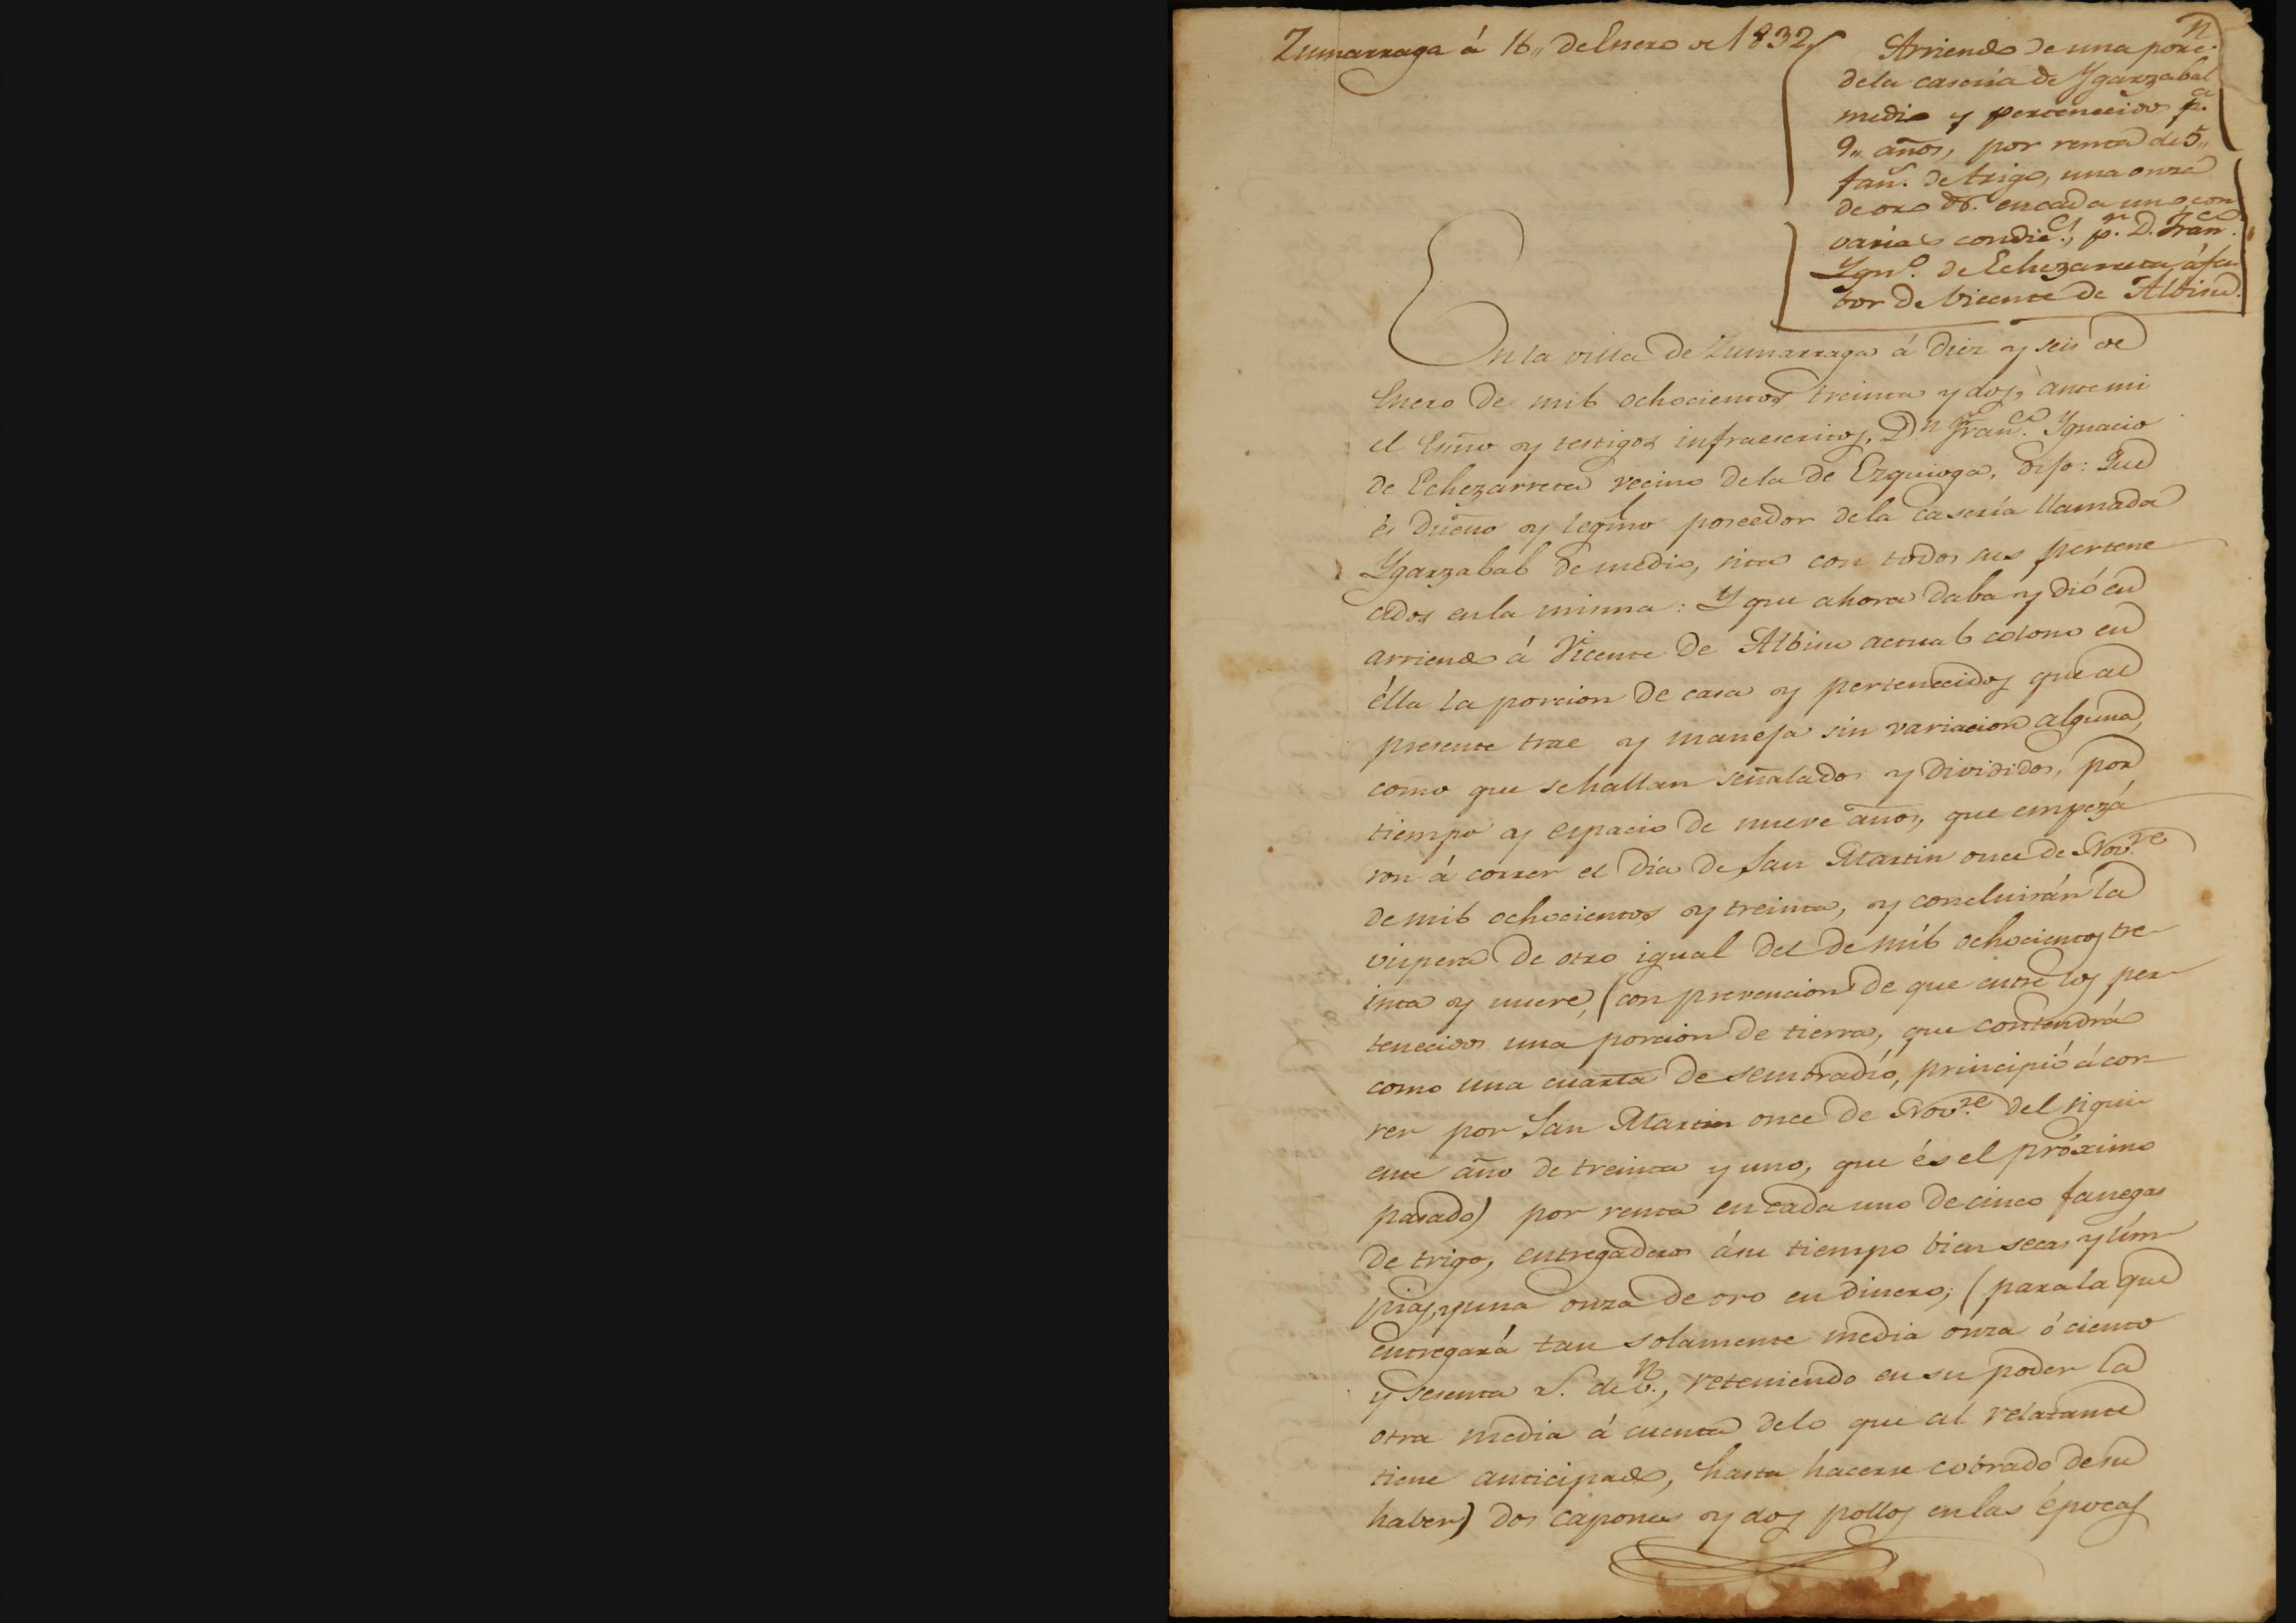 Zumarraga á 16,, de Enero de 1832,
Arriendo de una porc.n
de la casería de Ygarzabal
medio y pertenecidos p.a
9,, años, por renta de 5,,
fan.s de trigo, una onza
de oro &. en cada uno con
varias condic.s, p.r D. Fran.co
Ygn.o de Echezarreta á fa-
bor de Vicente de Albisu.
En la villa de Zumarraga á diez y seis de
Enero de mil ochocientos treinta y dos, ante mi
el Esño y testigos infraescritos, D.n Fran.co Ygnacio
de Echezarreta vecino de la de Ezquioga, dijo: Que
és dueño y legmo poseedor de la casería llamada
Ygarzabal de medio, sita con todos sus pertene
cidos en la misma: Y que ahora daba y dió en
arriendo á Vicente de Albisu actual colono en
élla la porcion de casa y pertenecidos que al
presente trae y maneja sin variacion alguna,
como que se hallan señalados y divididos, por
tiempo y espacio de nueve años, que empezá
ron á correr el día de San Martin once de Nov.re
de mil ochocientos y treinta, y concluirán la
vispera de otro igual del de mil ochocientos tre-
inta y nueve, (con prevencion de que entre los per-
tenecidos una porcion de tierra, que contendrá
como una cuarta de sembradío, principió á cor-
rer por San Martin once de Nov.re del sigui-
ente año de treinta y uno, que és el próximo
pasado) por renta en cada uno de cinco fanegas
de trigo, entregaderas á su tiempo bien secas y lím-
pias, y una onza de oro en dinero; (para la que
entregará tan solamente media onza ó ciento
y sesenta r.s de v.n, reteniendo en su poder la
otra media á cuenta de lo que al relatante
tiene anticipado, hasta hacerse cobrado de su
haber) dos capones y dos pollos en las épocas